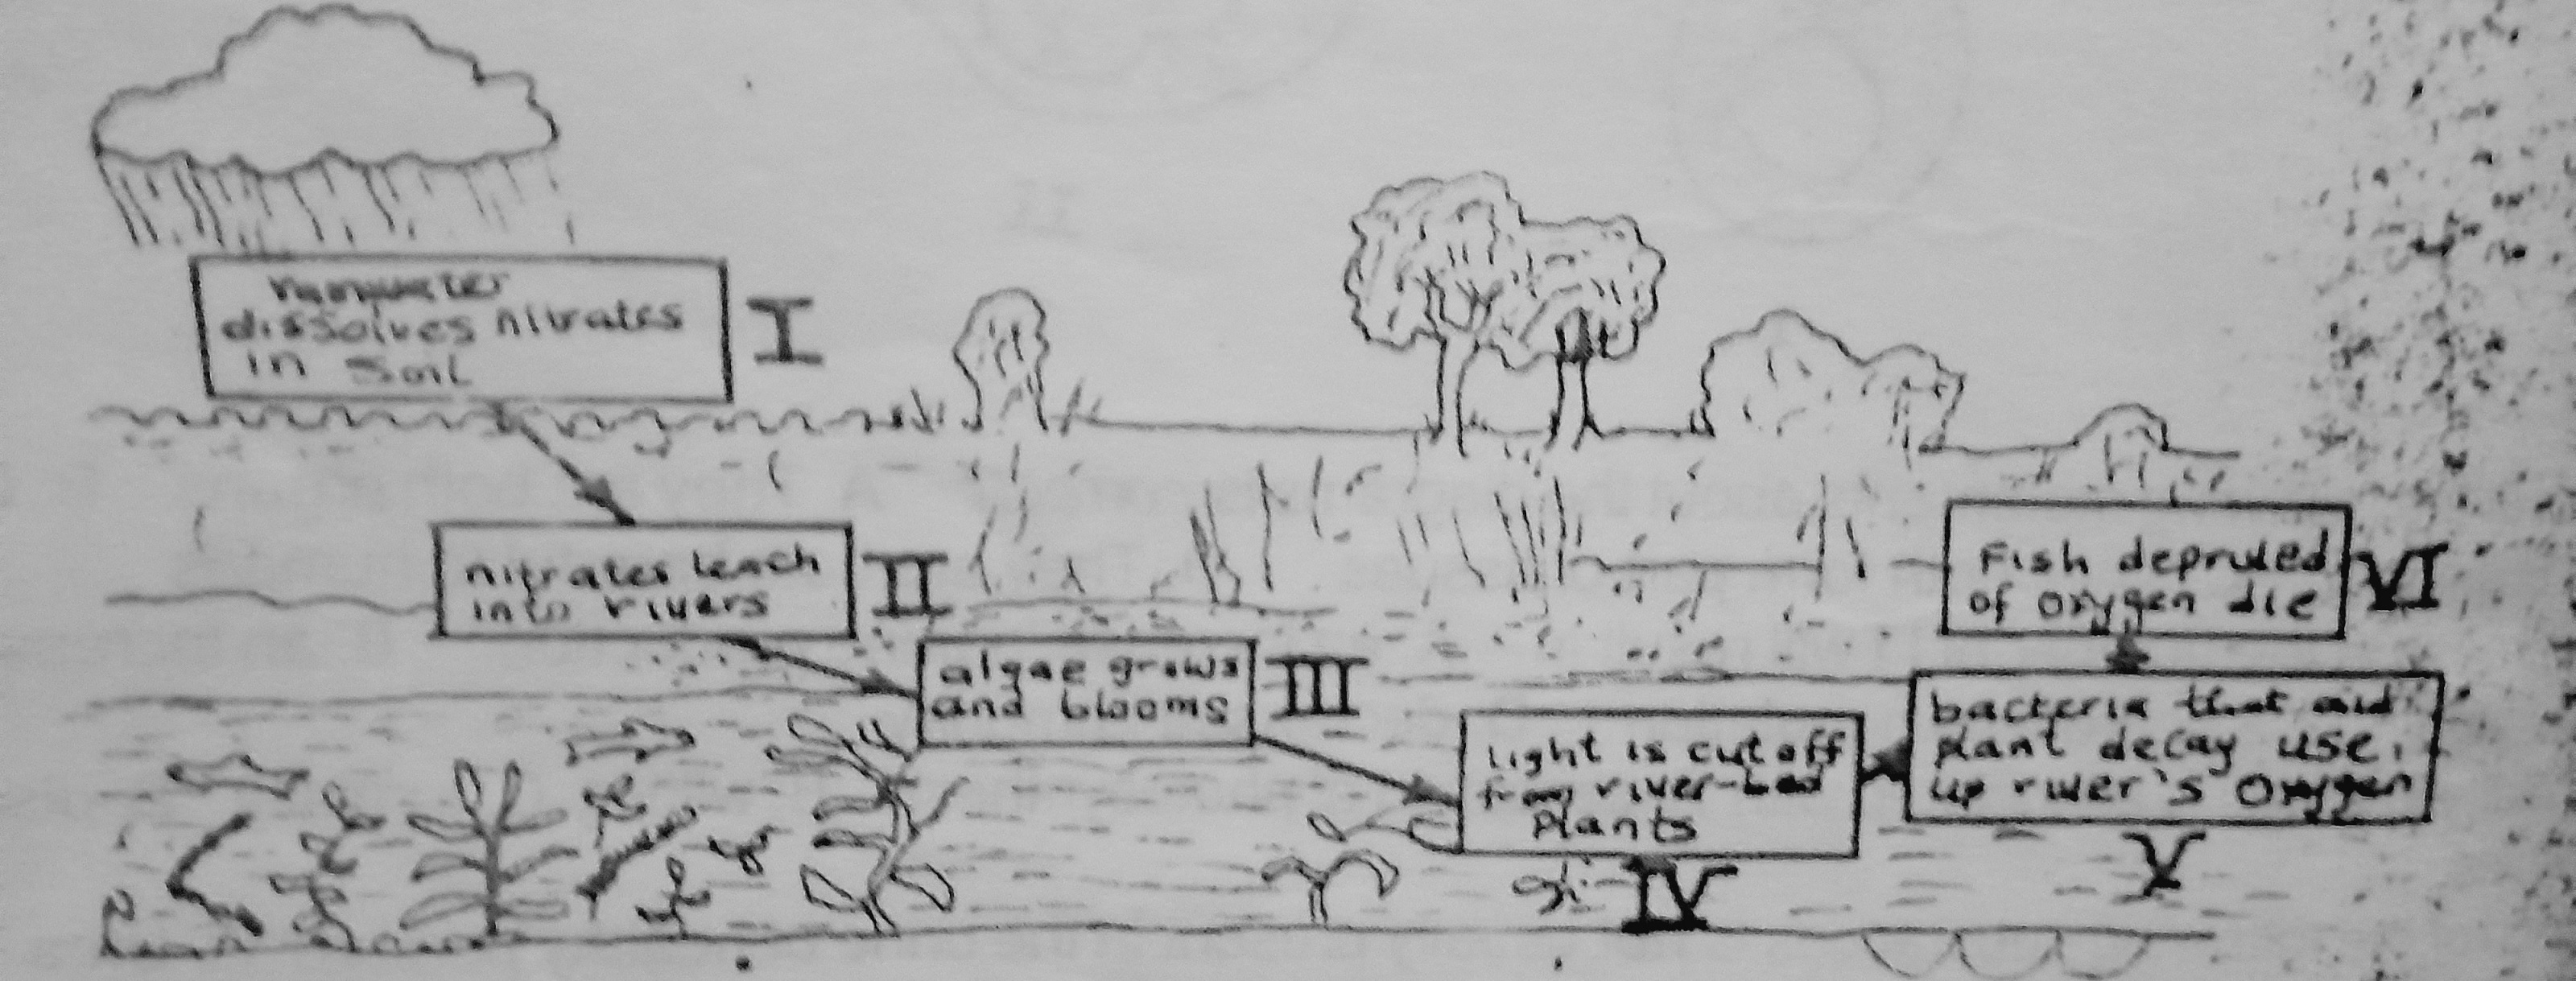 rainwater
dissolves nitrates
in soil
I
nitrates leach
into rivers
II
algae grows
and blooms
III
light is cut off
from river-bed
plants
IV
bacteria that aid
plant decay use
up river's oxygen
V
Fish depruled
of oxygen die
VI